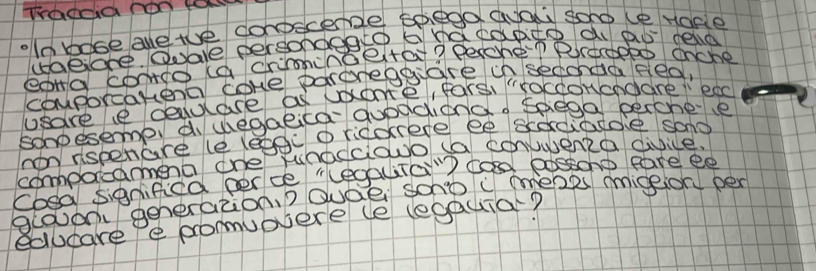 Traccia non
• In base alle tue conoscenze spiega quali sono le mafie
italiane. Quale personaggio ti ha colpito di più nella
lotta contro la criminalità? Perché? Purtroppo anche
comportamenti come parcheggiare in seconda fila,
usare il cellulare al volante, farsi "raccomandare" ecc
sono esempi di illegalità quotidiana. Spiega perché il
non rispettare le leggi o ricorrere le scorciatoie sono
comportamenti che minacciano la convivenza civile.
Cosa significa per te "legalità"? Cosa possono fare le
giovani generazioni? Quali sono i mezzi migliori per
educare e promuovere la legalità?